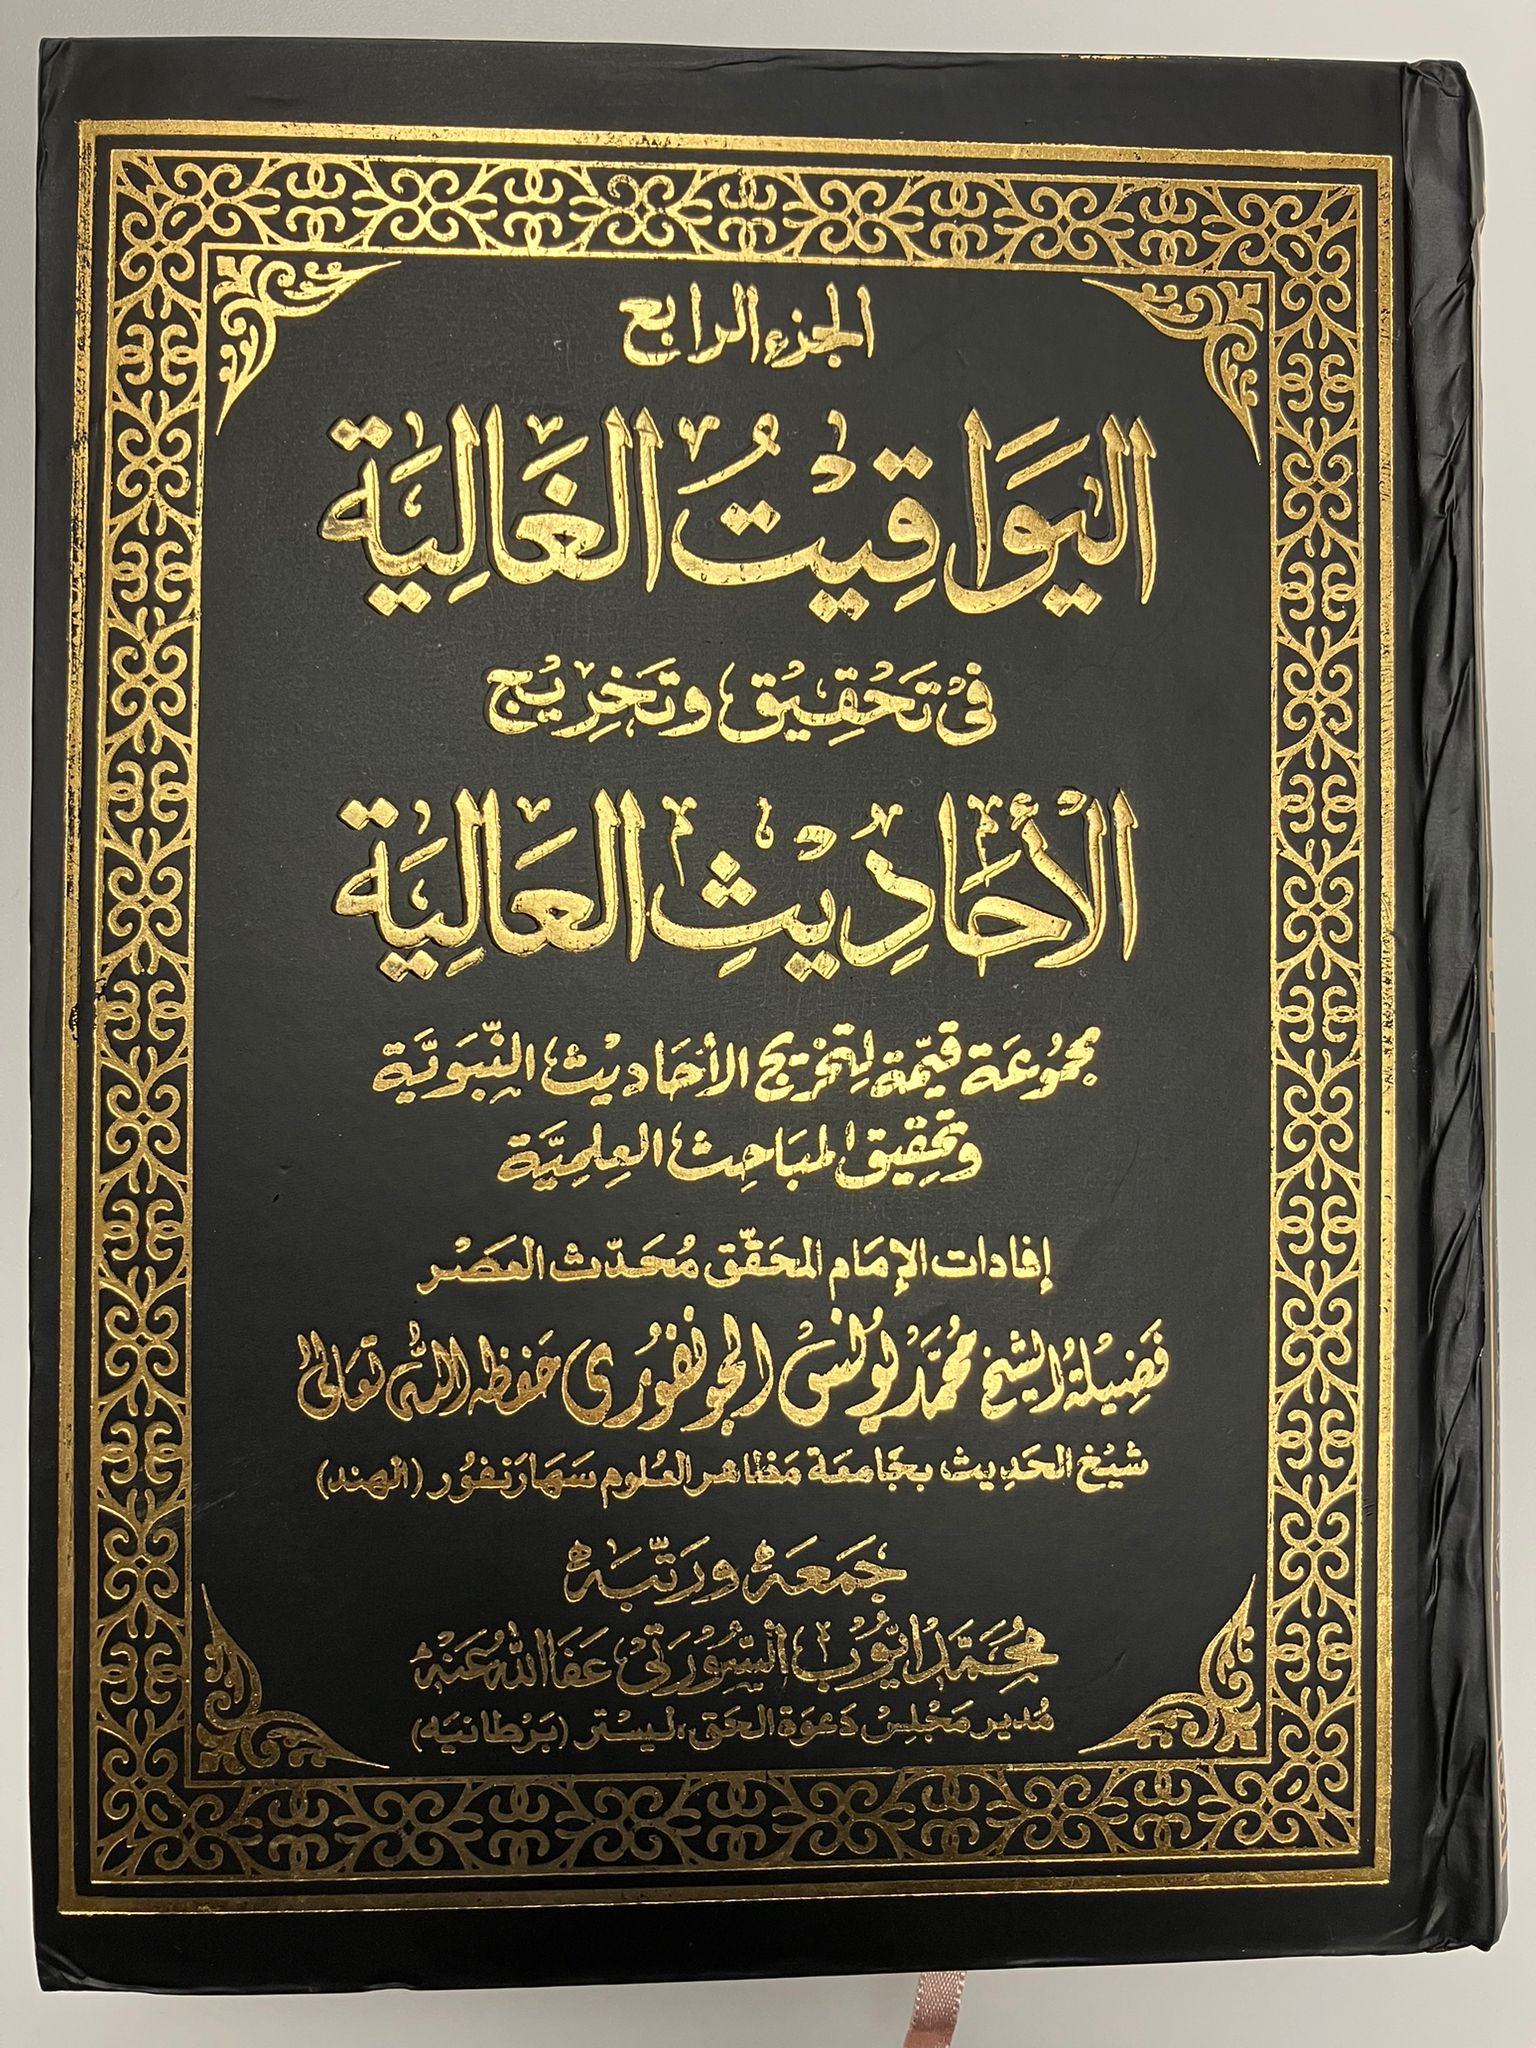 الجزء الرابع
اليَوَاقِيْتُ الغَالِيَة
فِيْ تَحْقِيْقِ وتَخْرِيْجِ
الأَحَادِيْثِ العَالِيَة
مجمُوعَة قيّمة لِتخريج الأحَاديْث النّبَويَّة
وتحقيق المبَاحِث العِلميَّة
إفادات الإمَام المحَقّق مُحَدّث العَصْر
فَضِيلَةُ الشيخ محُمَّد يُونسْ الجونفُورى حَفظهُ اللّٰه تعَالىٰ
شيْخ الحَدِيث بجَامعَة مَظاهر العُلوم سَهَارَنفُور (الهند)
جَمَعَهُ وَرَتّبَهُ
مُحِمَّد ايّوُبْ السُّوْرَتىْ عَفَا اللّٰهُ عَنهُ
مُدير مَجْلِسْ دَعوَة الحَق، ليسْتر (بَرْطانيَه)